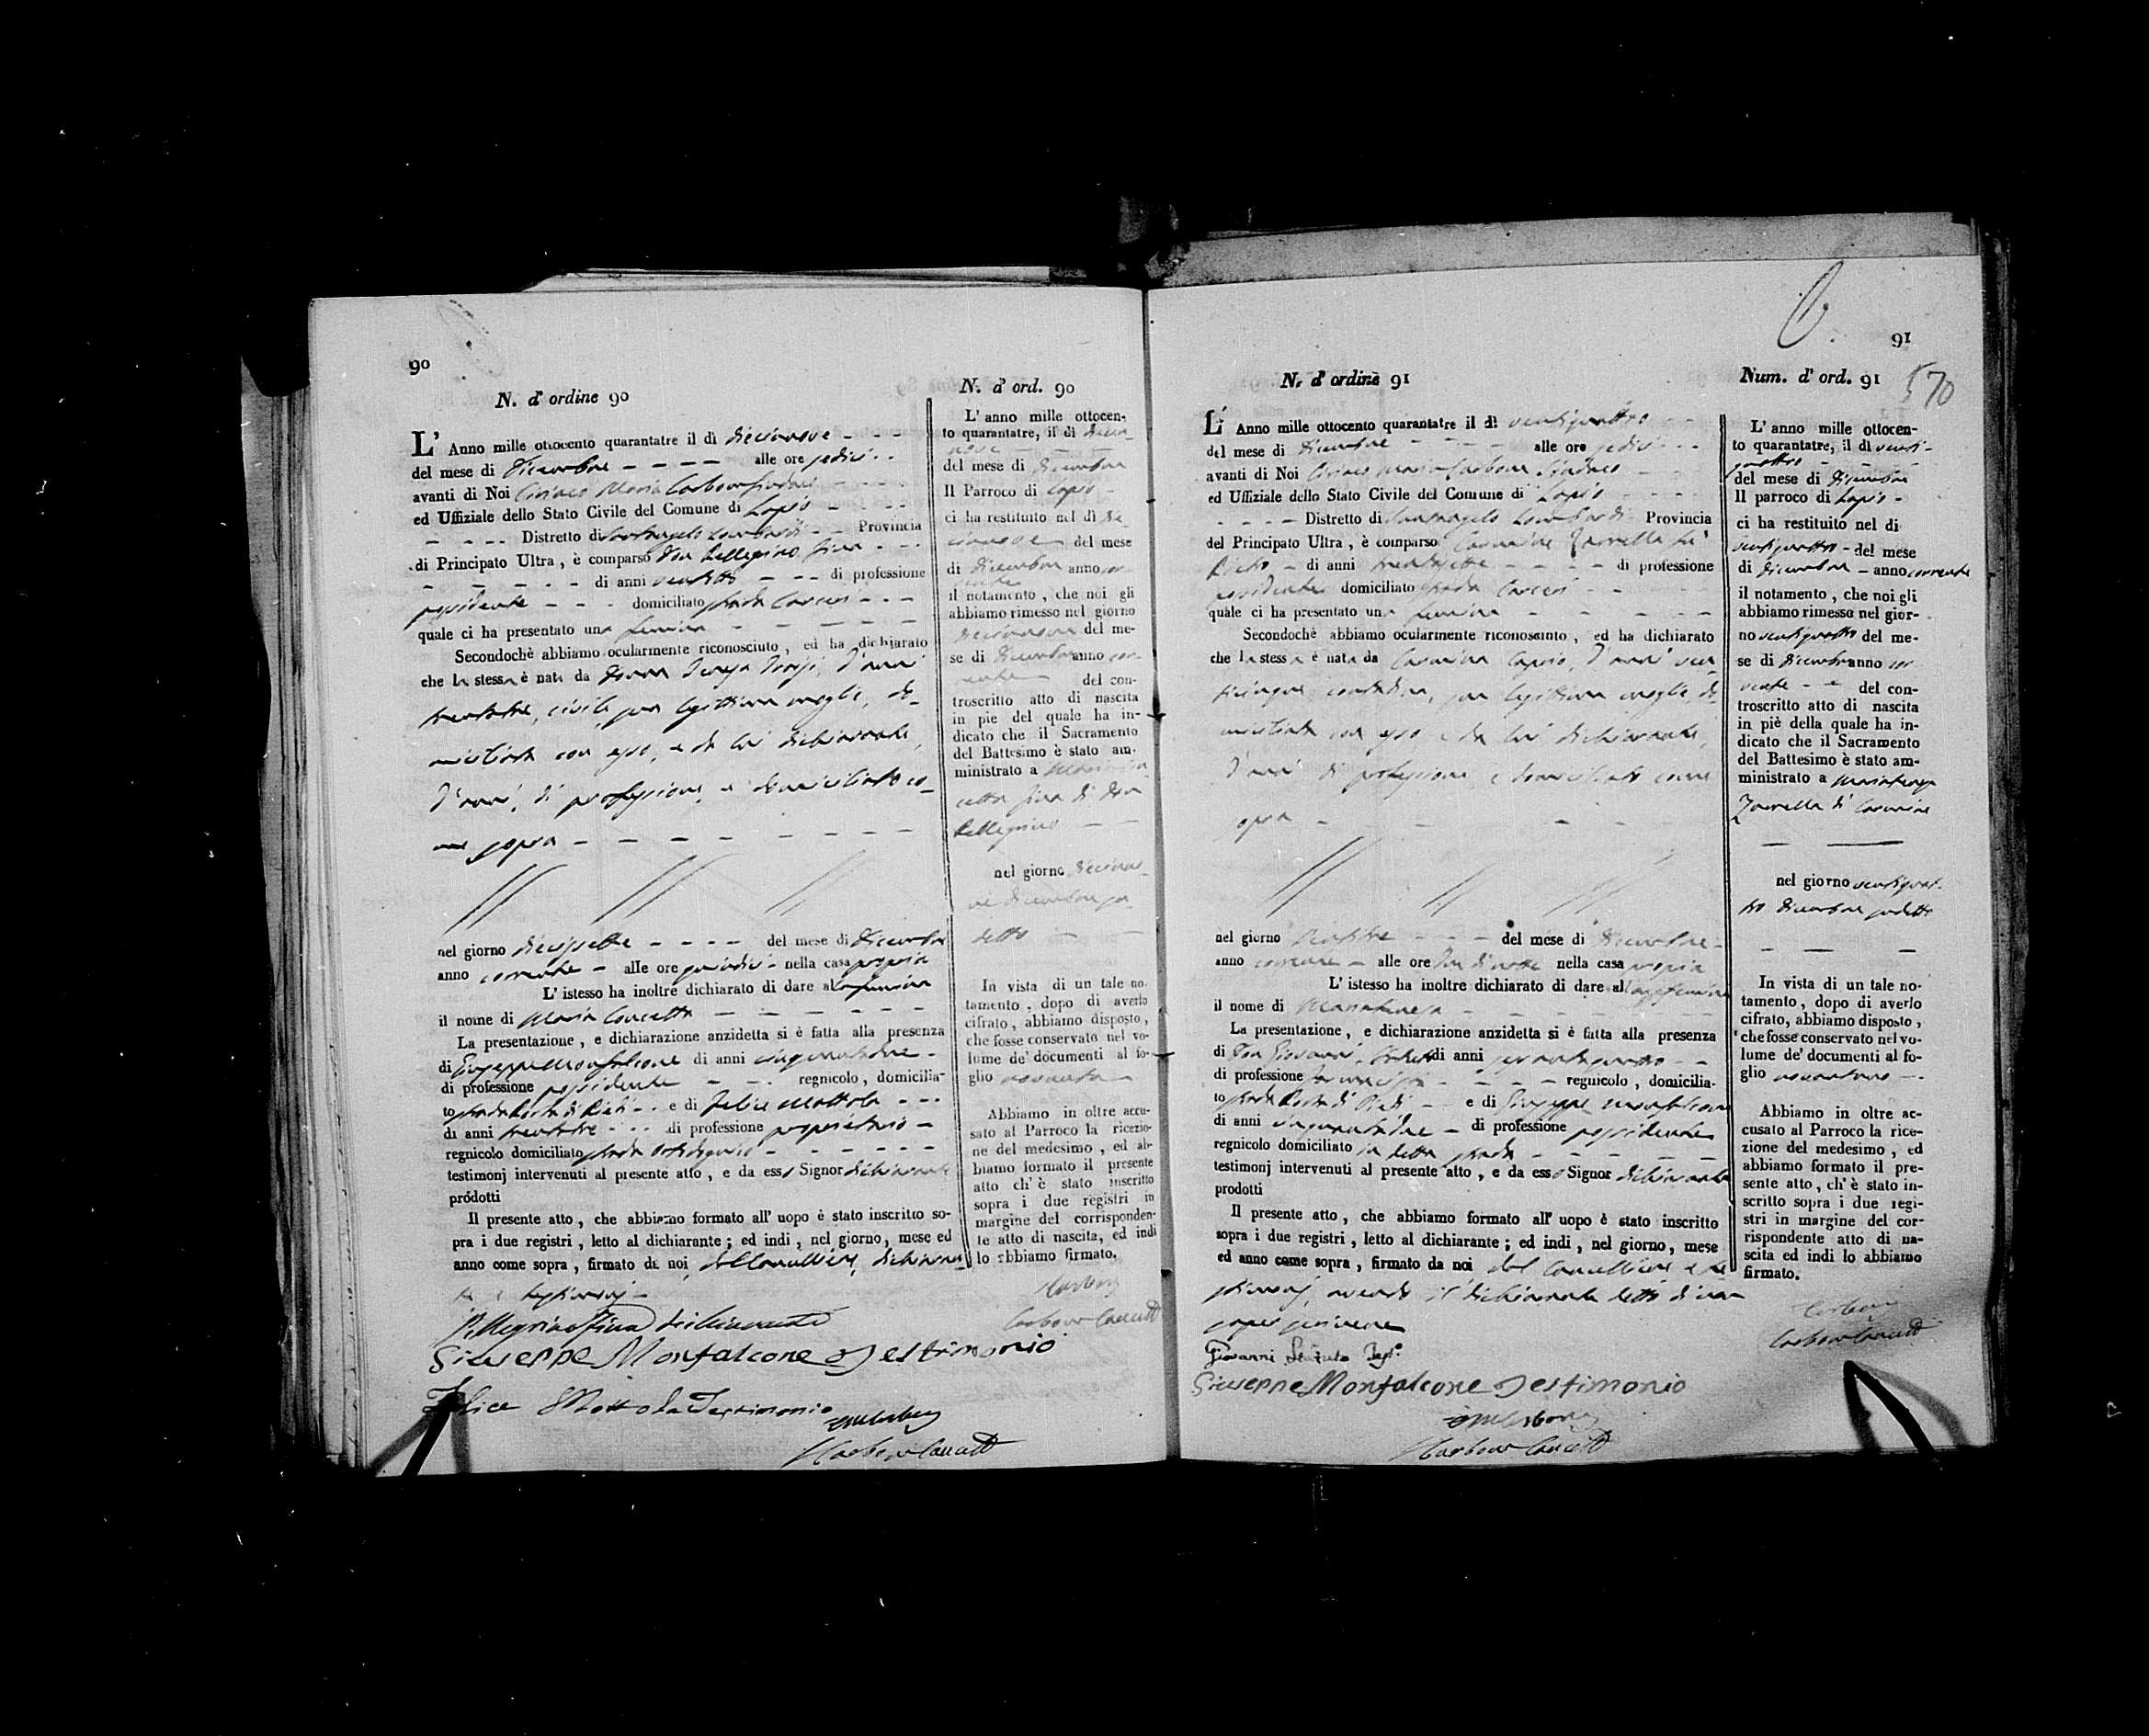 90
N. d' ordine 90
L' Anno mille ottocento quarantatre il dì diecinove - - -
del mese di Dicembre - - - - alle ore sedici - -
avanti di Noi Ciriaco Maria Carbone Sindaco - - - -
ed Uffiziale dello Stato Civile del Comune di Lapio - - -
- - - Distretto di Santangelo Lombardi - - Provincia
di Principato Ultra, è comparso Don Pellegrino Fina - - -
- - - - - di anni ventotto - - - di professione
possidente - - - domiciliato strada Carceri - - -
quale ci ha presentato una femina - - - - -
Secondochè abbiamo ocularmente riconosciuto, ed ha dichiarato
che la stessa è nata da Donna Teresa d'anni
trentatre, civile, sua legittima moglie, do-
miciliata con esso, e da lui dichiarante,
d'anni, di professione, e domiciliato co-
me sopra - - - - - - - -
nel giorno diecissette - - - - del mese di Dicembre
anno corrente - alle ore quindici - nella casa propria
L' istesso ha inoltre dichiarato di dare alla femina
il nome di Maria Concetta - - - - - -
La presentazione, e dichiarazione anzidetta si è fatta alla presenza
di Giuseppe Monfalcone di anni cinquantadue -
di professione possidente - - - regnicolo, domicilia-
to strada Porta di Piedi - - e di Felice Mottola - - -
di anni trentatre - - - di professione proprietario -
regnicolo domiciliato strada - - - - - -
testimonj intervenuti al presente atto, e da esso Signor dichiarante
prodotti
Il presente atto, che abbiamo formato all' uopo è stato inscritto so-
pra i due registri, letto al dichiarante; ed indi, nel giorno, mese ed
anno come sopra, firmato da noi, dal Cancelliere, dichiaran-
te e testimonj -
Pellegrino Fina dichiarante
Giuseppe Monfalcone Testimonio
Felice Mottola Testimonio
Carbone Cancell
N. d' ord. 90
L' anno mille ottocen-
to quarantatre, il dì diecin-
nove - - -
del mese di Dicembre
Il Parroco di Lapio -
ci ha restituito nel dì die-
cinove - del mese
di Dicembre anno cor-
rente
il notamento, che noi gli
abbiamo rimesso nel giorno
diecinove del me-
se di Dicembre anno cor-
rente - del con-
troscritto atto di nascita
in piè del quale ha in-
dicato che il Sacramento
del Battesimo è stato am-
ministrato a Maria Con-
cetta Fina di Don
Pellegrino - -
nel giorno diecino-
ve dicembre su-
detto - -
In vista di un tale no-
tamento, dopo di averlo
cifrato, abbiamo disposto,
che fosse conservato nel vo-
lume de' documenti al fo-
glio novanta -
Abbiamo in oltre accu-
sato al Parroco la ricezio-
ne del medesimo, ed ab-
biamo formato il presente
atto ch' è stato inscritto
sopra i due registri in
margine del corrisponden-
te atto di nascita, ed indi
lo abbiamo firmato.
Carbone
Carbone Cancell
91
N. d' ordine 91
L' Anno mille ottocento quarantatre il dì ventiquattro - -
del mese di Dicembre - - - - alle ore sedici - - -
avanti di Noi Ciriaco Maria Carbone Sindaco - -
ed Uffiziale dello Stato Civile del Comune di Lapio - - - -
- - - - Distretto di Santangelo Lombardi - Provincia
del Principato Ultra, è comparso Carmine Zarrella fu
- di anni trentasette - - - - di professione
domiciliato strada Carceri - - -
quale ci ha presentato una femina - - - - -
Secondochè abbiamo ocularmente riconosciuto, ed ha dichiarato
che la stessa è nata da Carmina Caprio, d'anni ven-
ticinque, contadina, sua legittima moglie, do-
miciliata con esso, e da lui dichiarante,
d'anni di professione, e domiciliato come
sopra - - - -
nel giorno ventitre - - - del mese di Dicembre -
anno corrente - alle ore due di notte nella casa propria
L' istesso ha inoltre dichiarato di dare alla stessa femina
il nome di Mariateresa - - - - - -
La presentazione, e dichiarazione anzidetta si è fatta alla presenza
di Don Giovanni di anni sessantaquattro - -
di professione farmacista - - - - regnicolo, domicilia-
to strada Porta di Piedi - - e di Giuseppe Monfalcone
di anni cinquantadue - di professione possidente
regnicolo domiciliato in detta strada - - - -
testimonj intervenuti al presente atto, e da esso Signor dichiarante
prodotti
Il presente atto, che abbiamo formato all' uopo è stato inscritto
sopra i due registri, letto al dichiarante; ed indi, nel giorno, mese
ed anno come sopra, firmato da noi dal Cancelliere e te-
stimonj, avendo il dichiarante detto di non
saper scrivere
Giovanni Test.
Giuseppe Monfalcone Testimonio
Carbone
Carbone Cancell
Num. d' ord. 91 570
L' anno mille ottocen-
to quarantatre, il dì venti-
quattro - - -
del mese di Dicembre
Il parroco di Lapio -
ci ha restituito nel dì
ventiquattro - del mese
di Dicembre - anno corrente
il notamento, che noi gli
abbiamo rimesso nel gior-
no ventiquattro del me-
se di Dicembre anno cor-
rente - - del con-
troscritto atto di nascita
in piè della quale ha in-
dicato che il Sacramento
del Battesimo è stato am-
ministrato a Mariateresa
Zarrella di Carmine
nel giorno ventiquat-
tro dicembre sudetto
In vista di un tale no-
tamento, dopo di averlo
cifrato, abbiamo disposto,
che fosse conservato nel vo-
lume de' documenti al fo-
glio novantuno -
Abbiamo in oltre ac-
cusato al Parroco la rice-
zione del medesimo, ed
abbiamo formato il pre-
sente atto, ch' è stato in-
scritto sopra i due regi-
stri in margine del cor-
rispondente atto di na-
scita ed indi lo abbiamo
firmato.
Carbone
Carbone Cancell